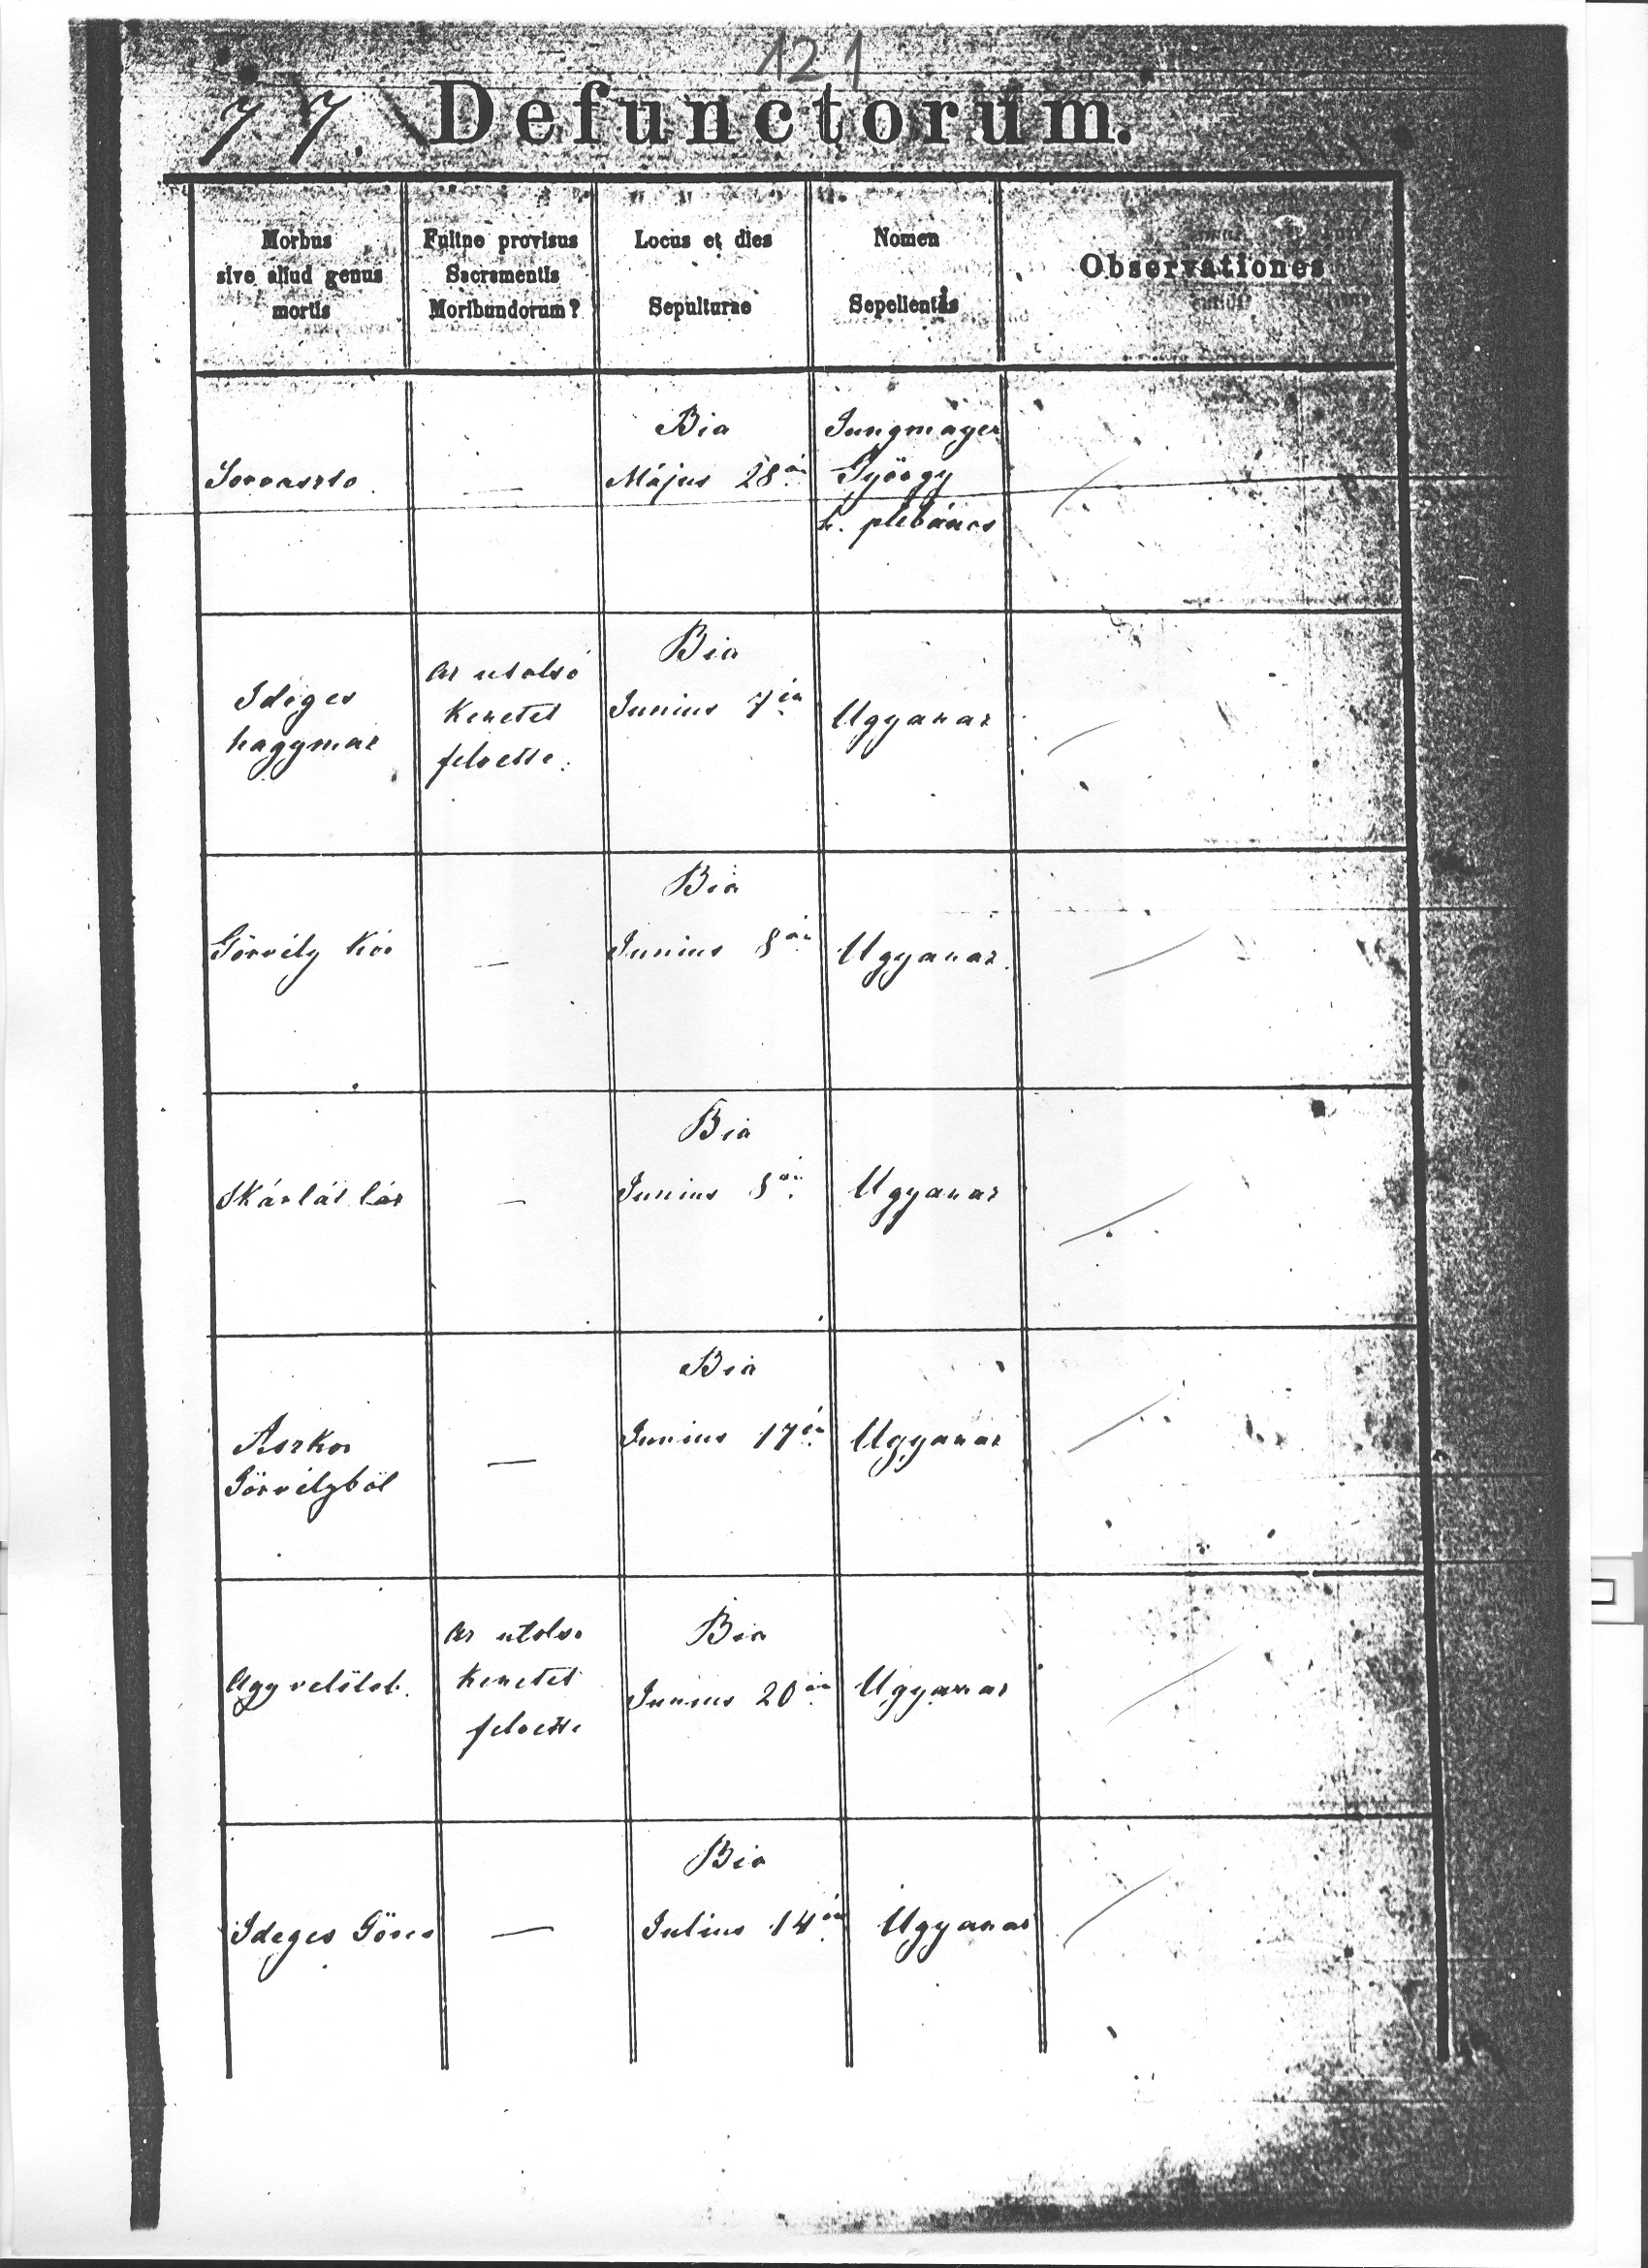 121
77. Defunctorum.
Morbus
sive aliud genus
mortis
Fuitne provisus
Sacramentis
Moribundorum?
Locus et dies
Sepulturae
Nomen
Sepelientis
Observationes
Sorvaszto
—
Bia
Május 28án
Jungmayer
György
h. plébános
Ideges
hagymaz
Az utolsó
Kenetet
felvette.
Bia
Junius 7én
Ugyanaz
Görvély Kór
—
Bia
Junius 8án
Ugyanaz
Skárlát láz
—
Bia
Junius 8án
Ugyanaz
Aszkor
Görvélyból
—
Bia
Junius 17én
Ugyanaz
Agyvelölob.
Az utolso
Kenetet
felvette
Bia
Junius 20án
Ugyanaz
Ideges Görcs
—
Bia
Julius 14én
Ugyanaz